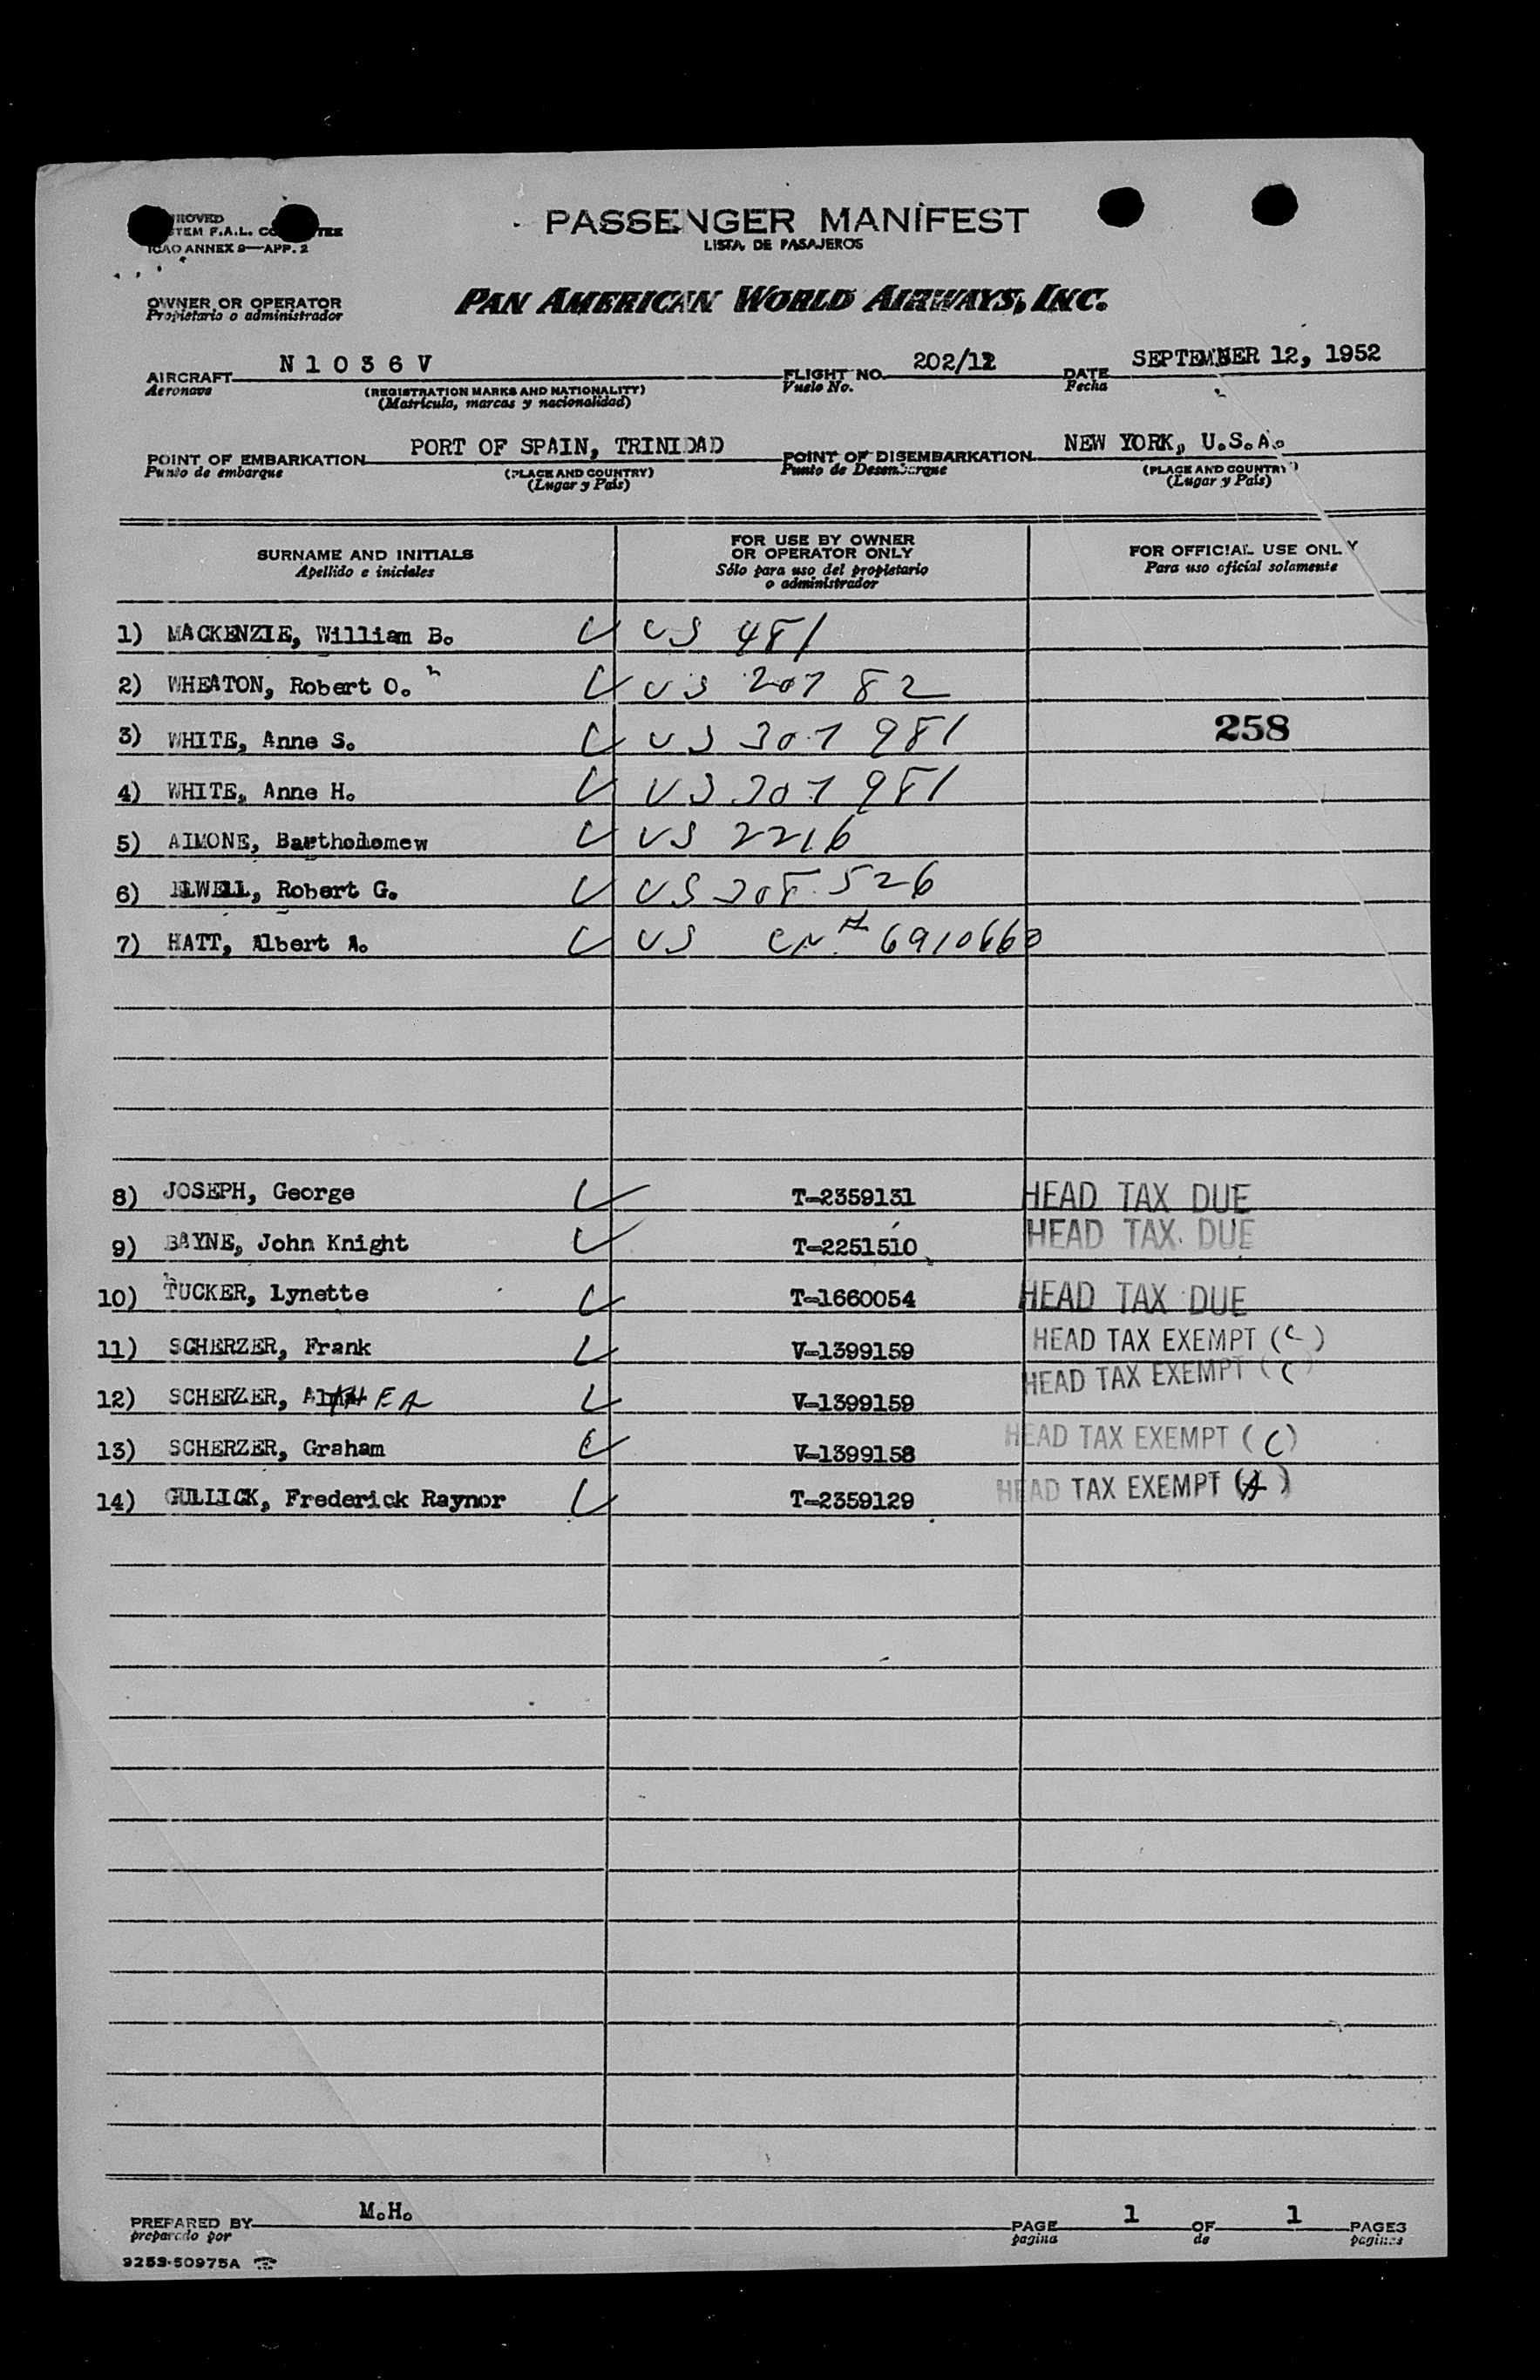 PASSENGER MANIFEST
LISTA DE PASAJEROS
ICAO ANNEX 9—APP. 2
OWNER OR OPERATOR
Propietario o administrador
PAN AMERICAN WORLD AIRWAYS, INC.
AIRCRAFT N 1 0 3 6 V FLIGHT NO. 202/12 DATE SEPTEMBER 12, 1952
Aeronave (REGISTRATION MARKS AND NATIONALITY) Vuelo No. Fecha
(Matrícula, marcas y nacionalidad)
POINT OF EMBARKATION PORT OF SPAIN, TRINIDAD POINT OF DISEMBARKATION NEW YORK, U.S.A.
Punto de embarque (PLACE AND COUNTRY) Punto de Desembarque (PLACE AND COUNTRY)
(Lugar y País) (Lugar y País)
SURNAME AND INITIALS FOR USE BY OWNER OR OPERATOR ONLY FOR OFFICIAL USE ONLY
Apellido e iniciales Sólo para uso del propietario o administrador Para uso oficial solamente
1) MACKENZIE, William B. US 481
2) WHEATON, Robert O. US 207 82
3) WHITE, Anne S. US 307 981 258
4) WHITE, Anne H. US 307 981
5) AIMONE, Bartholomew US 2216
6) ELWELL, Robert G. US 308 526
7) HATT, Albert A. US CN# 6910660
8) JOSEPH, George T-2359131 HEAD TAX DUE
9) BAYNE, John Knight T-2251510 HEAD TAX DUE
10) TUCKER, Lynette T-1660054 HEAD TAX DUE
11) SCHERZER, Frank V-1399159 HEAD TAX EXEMPT (C)
12) SCHERZER, ALTHEA V-1399159 HEAD TAX EXEMPT (C)
13) SCHERZER, Graham V-1399158 HEAD TAX EXEMPT (C)
14) GULLICK, Frederick Raynor T-2359129 HEAD TAX EXEMPT (A)
PREPARED BY M.H. PAGE 1 OF 1 PAGES
preparado por pagina de paginas
9253-50975A